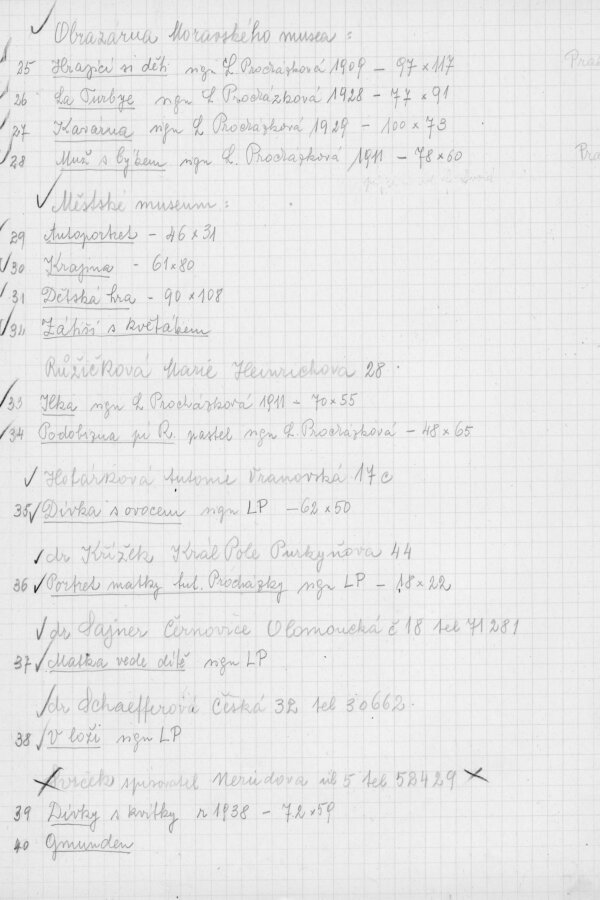 Obrazárna Moravského musea:
25 Hrající si děti sign L Procházková 1909 – 97 × 117
Pra
26 La Turbye sign L Procházková 1928 – 77 × 91
27 Kavárna sign L Procházková 1929 – 100 × 73
28 Muž s býkem sign L. Procházková 1911 – 78 × 60
Pra
Městské museum:
29 Autoportret – 46 × 31
30 Krajina – 61 × 80
31 Dětská hra – 90 × 108
Zátiší s květákem
Růžičková Marie Heinrichova 28.
33 Ilka sign L Procházková 1911 – 70 × 55
34 Podobizna pí R. pastel sign L. Procházková – 48 × 65
Antonie Vranovská 17 c
35 Dívka s ovocem sign LP – 62 × 50
dr Křížek Král Pole Purkyňova 44
36 Portret matky Procházky sign LP – 18 × 22
dr Sajner Černovice Olomoucká č 18 tel 71281
37 Matka vede dítě sign LP
dr Schaefferová Česká 32 tel 30662.
38 V loži sign LP
spisovatel Nerudova 5 tel 53429
39 Dívky s kvítky r 1938 – 72 × 59
40 Gmunden